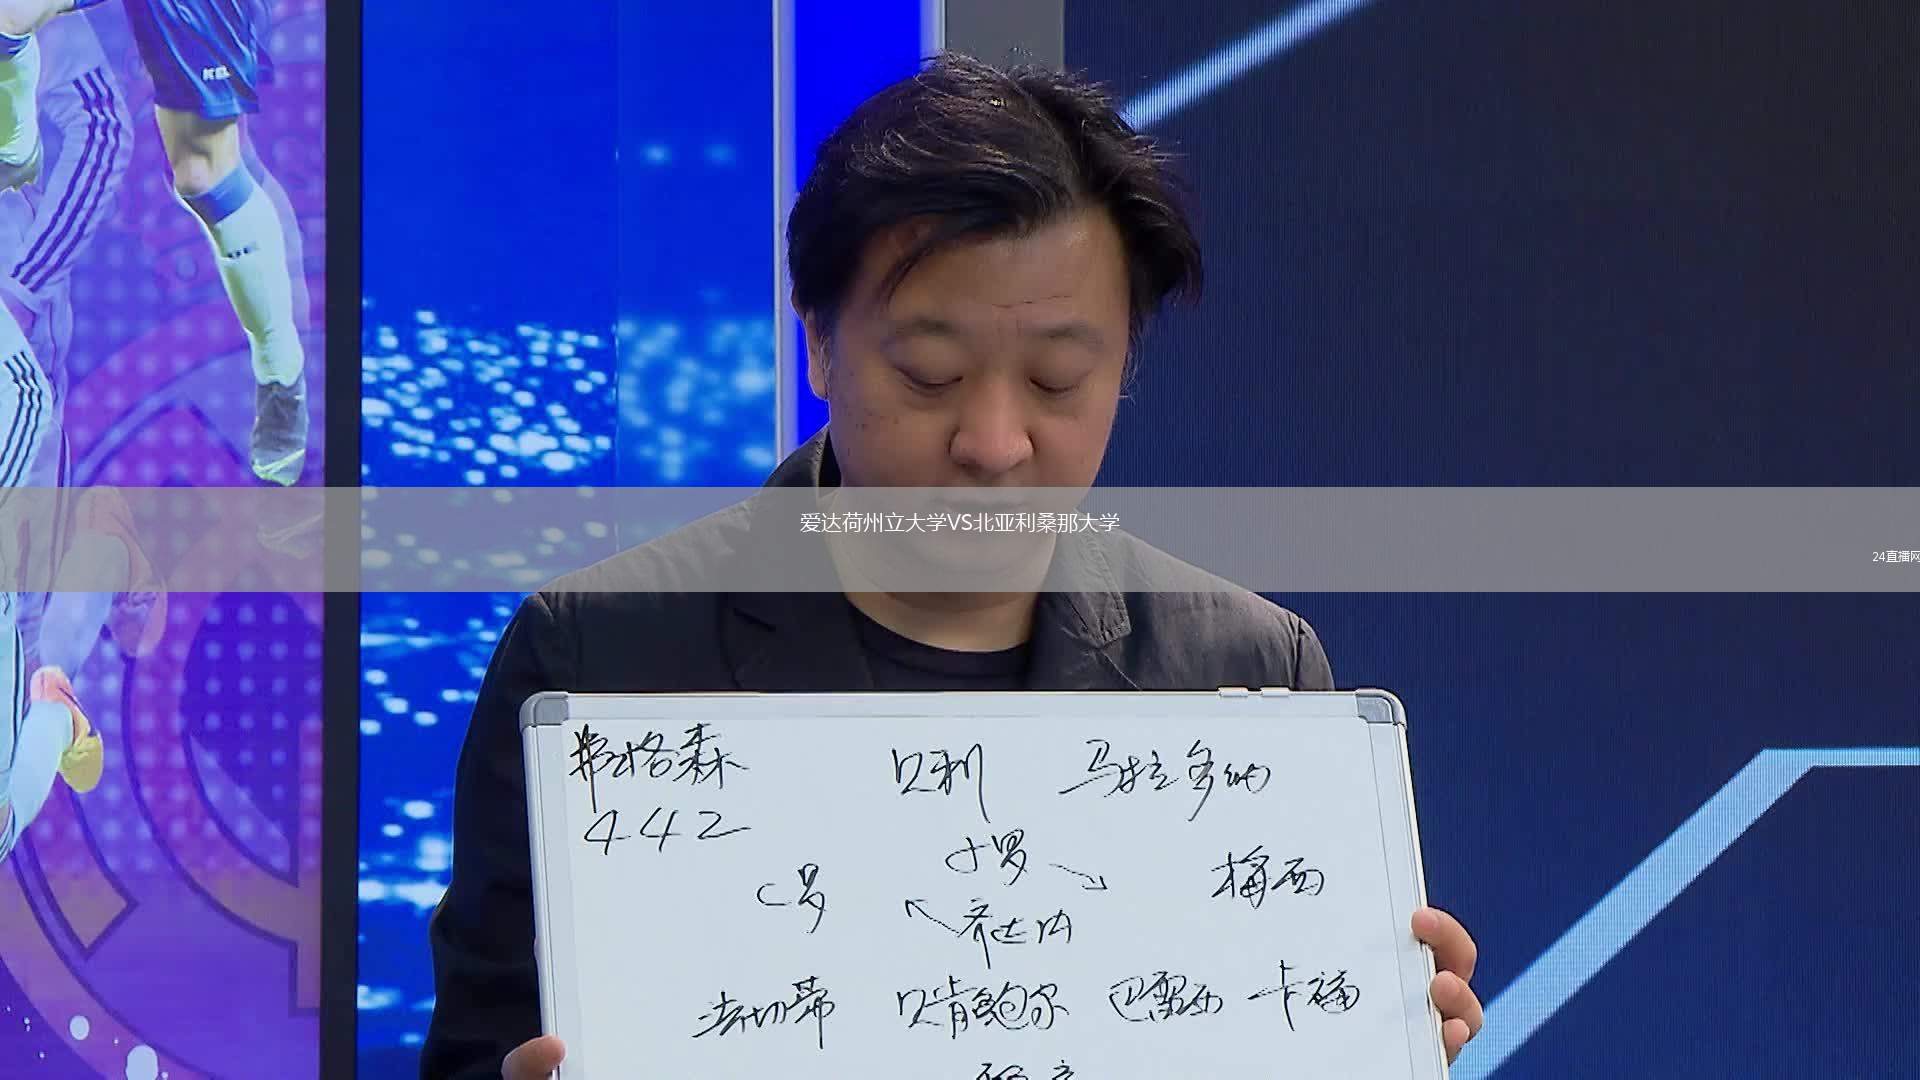 爱达荷州立大学VS北亚利桑那大学
24直播网
弗格森 贝利 马拉多纳
442
小罗
C罗 梅西
齐达内
法切蒂 贝肯鲍尔 巴雷西 卡福